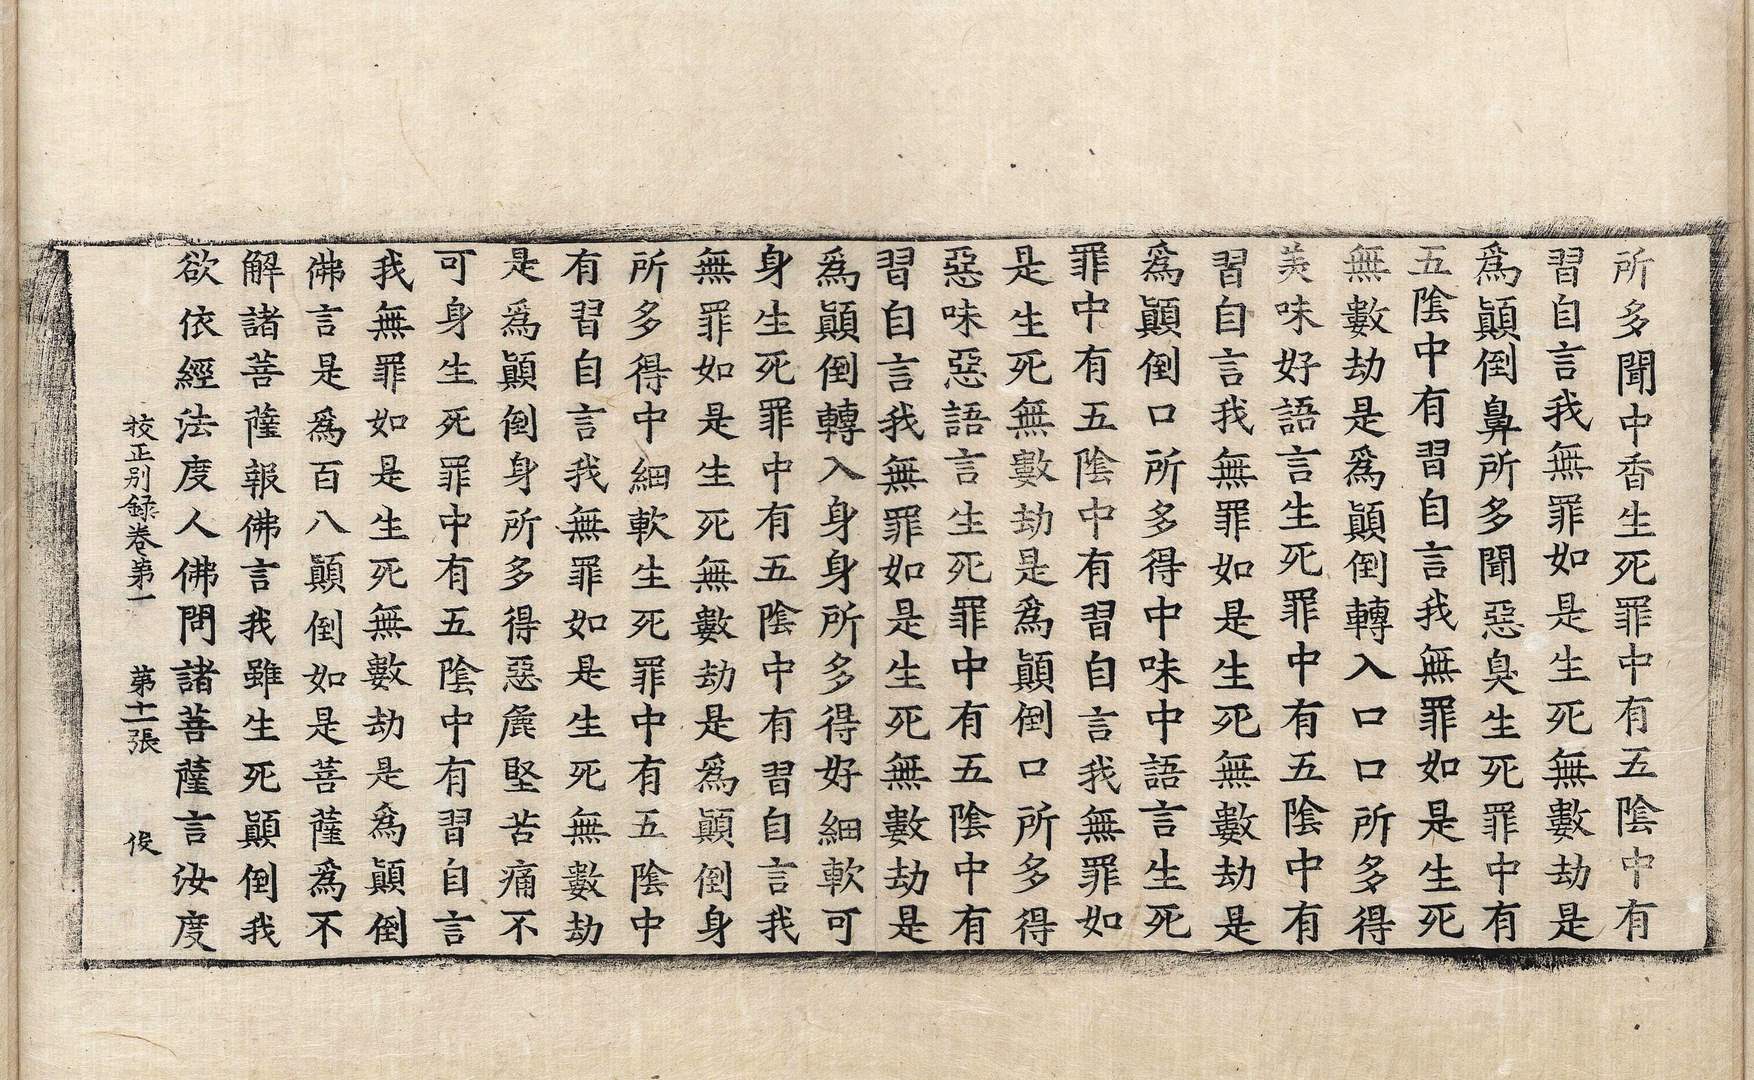 所多聞中香生死罪中有五陰中有
習自言我無罪如是生死無數劫是
爲顚倒鼻所多聞惡臭生死罪中有
五陰中有習自言我無罪如是生死
無數劫是爲顚倒轉入口口所多得
美味好語言生死罪中有五陰中有
習自言我無罪如是生死無數劫是
爲顚倒口所多得中味中語言生死
罪中有五陰中有習自言我無罪如
是生死無數劫是爲顚倒口所多得
惡味惡語言生死罪中有五陰中有
習自言我無罪如是生死無數劫是
爲顚倒轉入身身所多得好細軟可
身生死罪中有五陰中有習自言我
無罪如是生死無數劫是爲顚倒身
所多得中細軟生死罪中有五陰中
有習自言我無罪如是生死無數劫
是爲顚倒身所多得惡麁堅苦痛不
可身生死罪中有五陰中有習自言
我無罪如是生死無數劫是爲顚倒
佛言是爲百八顚倒如是菩薩爲不
解諸菩薩報佛言我雖生死顚倒我
欲依經法度人佛問諸菩薩言汝度
校正别錄卷第一 第十一張 俊